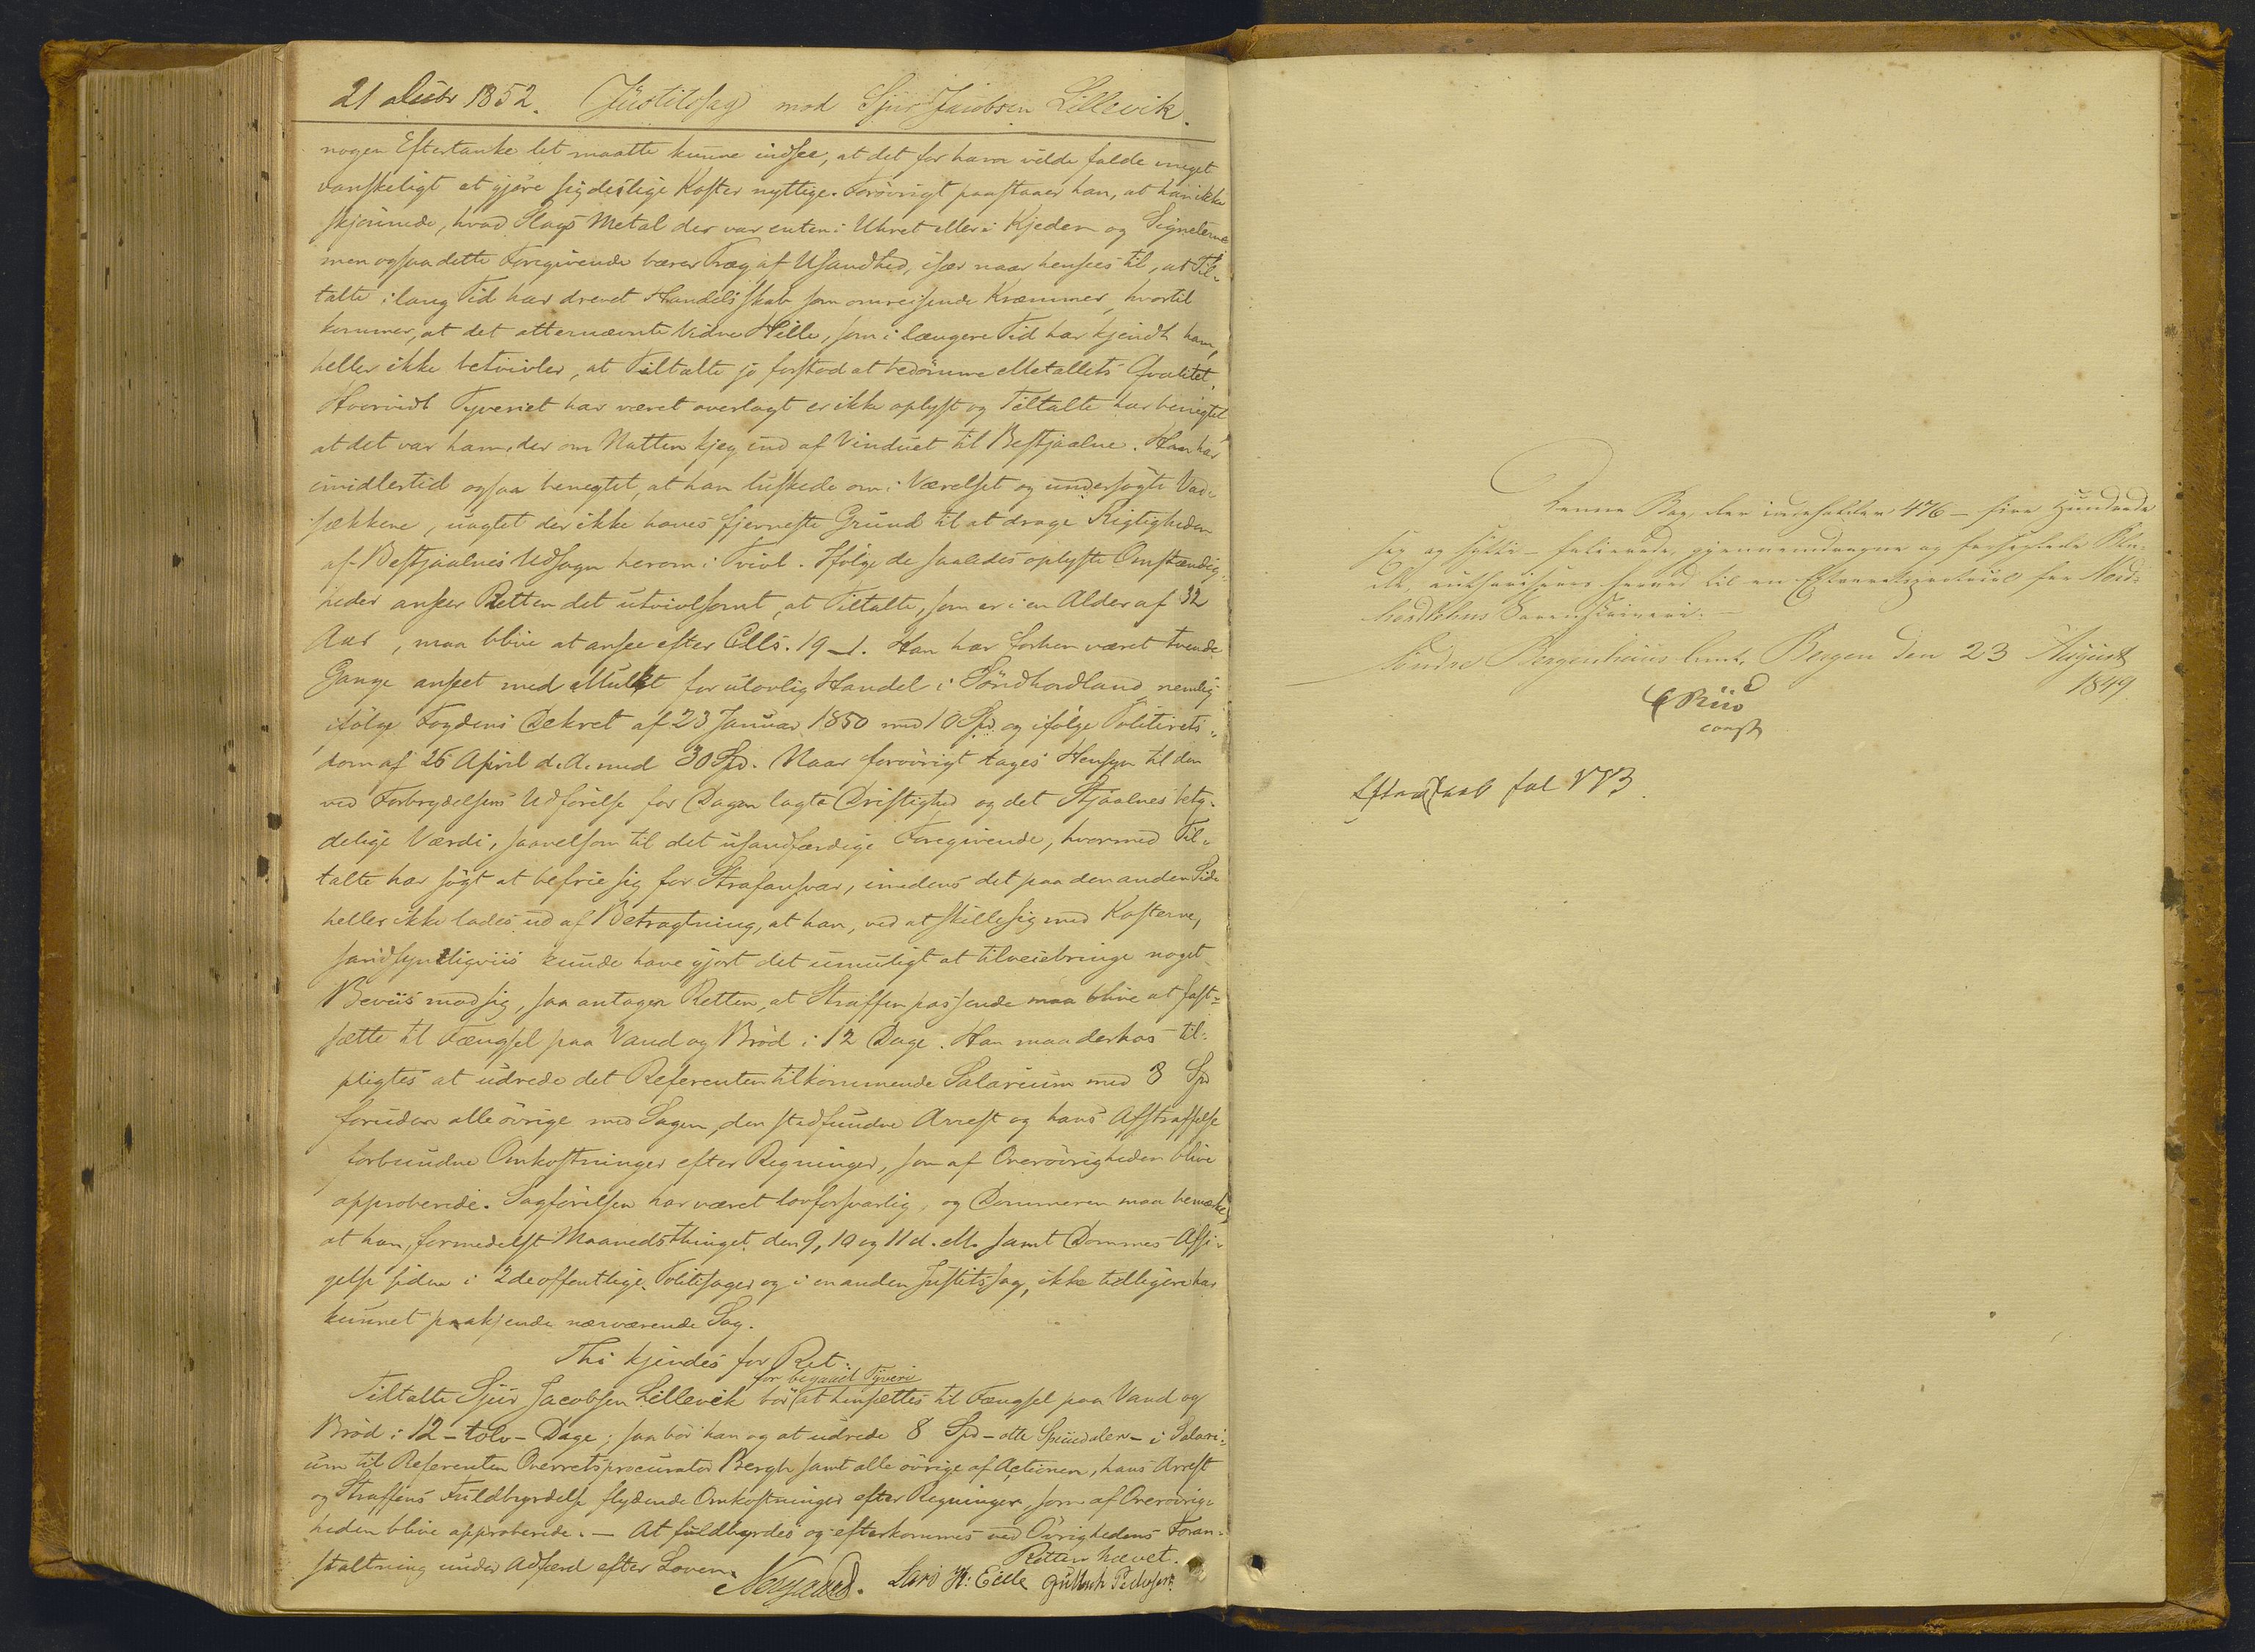 21 Octbr 1852. Justitssag mod Sjur Jacobsen Lillevik.
nogen Eftertanke let maatte kunne indsee, at det for ham vilde falde meget
vanskeligt at gjøre sig deslige Koster nyttige. Forøvrigt paastaaer han, at han ikke
skjønnede, hvad Slags Metal der var enten i Uhret eller i Kjeden og Signeterne
men ogsaa dette Foregivende bærer Præg af Usandhed, især naar hensees til, at Til-
talte i lang Tid har drevet Handelsskab som omreisende Kræmmer, hvortil
kommer, at det atternævnte Vidne Hille, som i længere Tid har kjendt ham,
heller ikke betvivler, at Tiltalte jo forstod at bedømme Metallets Qvalitet.
Hvorvidt Tyveriet har været overlagt er ikke oplyst og Tiltalte har benegtet
at det var ham, der om Natten kjeg ind af Vinduet til Bestjaalne. Han har
imidlertid ogsaa benegtet, at han luskede om i Værelset og undersøgte Vad-
sækkene, uagtet der ikke haves fjerneste Grund til at drage Rigtigheden
af Bestjaalnes Udsagn herom i Tvivl. Ifølge de saaledes oplyste Omstændig-
heder anseer Retten det utvivlsomt, at Tiltalte, som er i en Alder af 32
Aar, maa blive at ansee efter Clls. 19-1. Han har forhen været tvende
Gange anseet med Mulkt for ulovlig Handel i Søndhordland, nemlig
ifølge Fogdens Dekret af 23 Januar 1850 med 10 Spd. og ifølge Politirets-
dom af 26 April d. A. med 30 Spd. Naar forøvrigt tages Hensyn til den
ved Forbrydelsens Udførelse for Dagen lagte Dristighed og det Stjaalnes bety-
delige Værdi, saavelsom til det usandfærdige Foregivende, hvormed Til-
talte har søgt at befrie sig for Strafansvar, imedens det paa den anden Side
heller ikke lades ud af Betragtning, at han, ved at skille sig med Kosterne,
sandsynligviis kunde have gjort det umuligt at tilveiebringe noget
Beviis mod sig, saa antager Retten, at Straffen passende maa blive at fast-
sætte til Fængsel paa Vand og Brød i 12 Dage. Han maa derhos til-
pligtes at udrede det Referenten tilkommende Salarium med 8 Spd
foruden alle øvrige med Sagen, den stedfundne Arrest og hans Afstraffelse
forbundne Omkostninger efter Regninger, som af Overøvrigheden blive
approberede. Sagførelsen har været lovforsvarlig, og Dommeren maa bemærke,
at han, formedelst Maanedsthinget den 9, 10 og 11 d. M. samt Dommes Afsi-
gelse siden i 2de offentlige Politisager og i en anden Justitssag, ikke tidligere har
kunnet paakjende nærværende Sag.
Thi kjendes for Ret:
for begaaet Tyveri
Tiltalte Sjur Jacobsen Lillevik bør at hensættes til Fængsel paa Vand og
Brød i 12 - tolv - Dage; saa bør han og at udrede 8 Spd - otte Speciedaler - i Salari-
um til Referenten Overretsprocurator Bergh samt alle øvrige af Actionen, hans Arrest
og Straffens Fuldbyrdelse flydende Omkostninger efter Regninger, som af Overøvrig-
heden blive approberede. - At fuldbyrdes og efterkommes ved Øvrighedens Foran-
staltning under Adfærd efter Loven.
Retten hævet.
Lars H: Eide Gullach Pedersen
Denne Bog, der indeholder 476 - fire Hundrede
sex og sytti - folierede, gjennemdragne og forseglede Bla-
de, authoriseres herved til en Extraretsprotocol for Nord-
hordlehns Sorenskriveri. -
Søndre Bergenhuus Amt, Bergen den 23 August
1849
C Riis
const